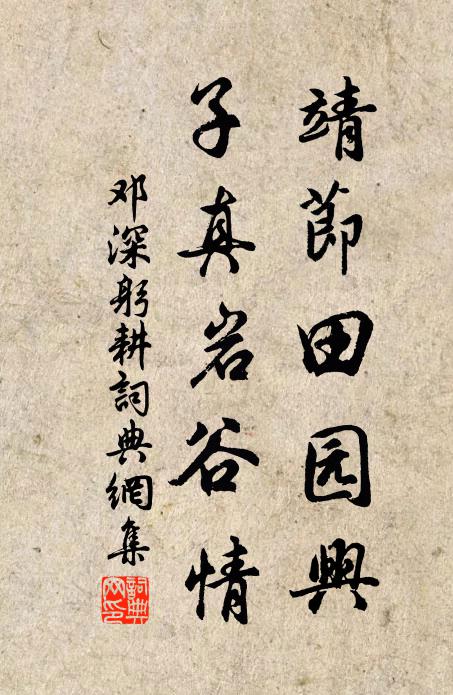 靖節田园興
子真岩谷情
邓深躬耕詞典網集
詞典
网印